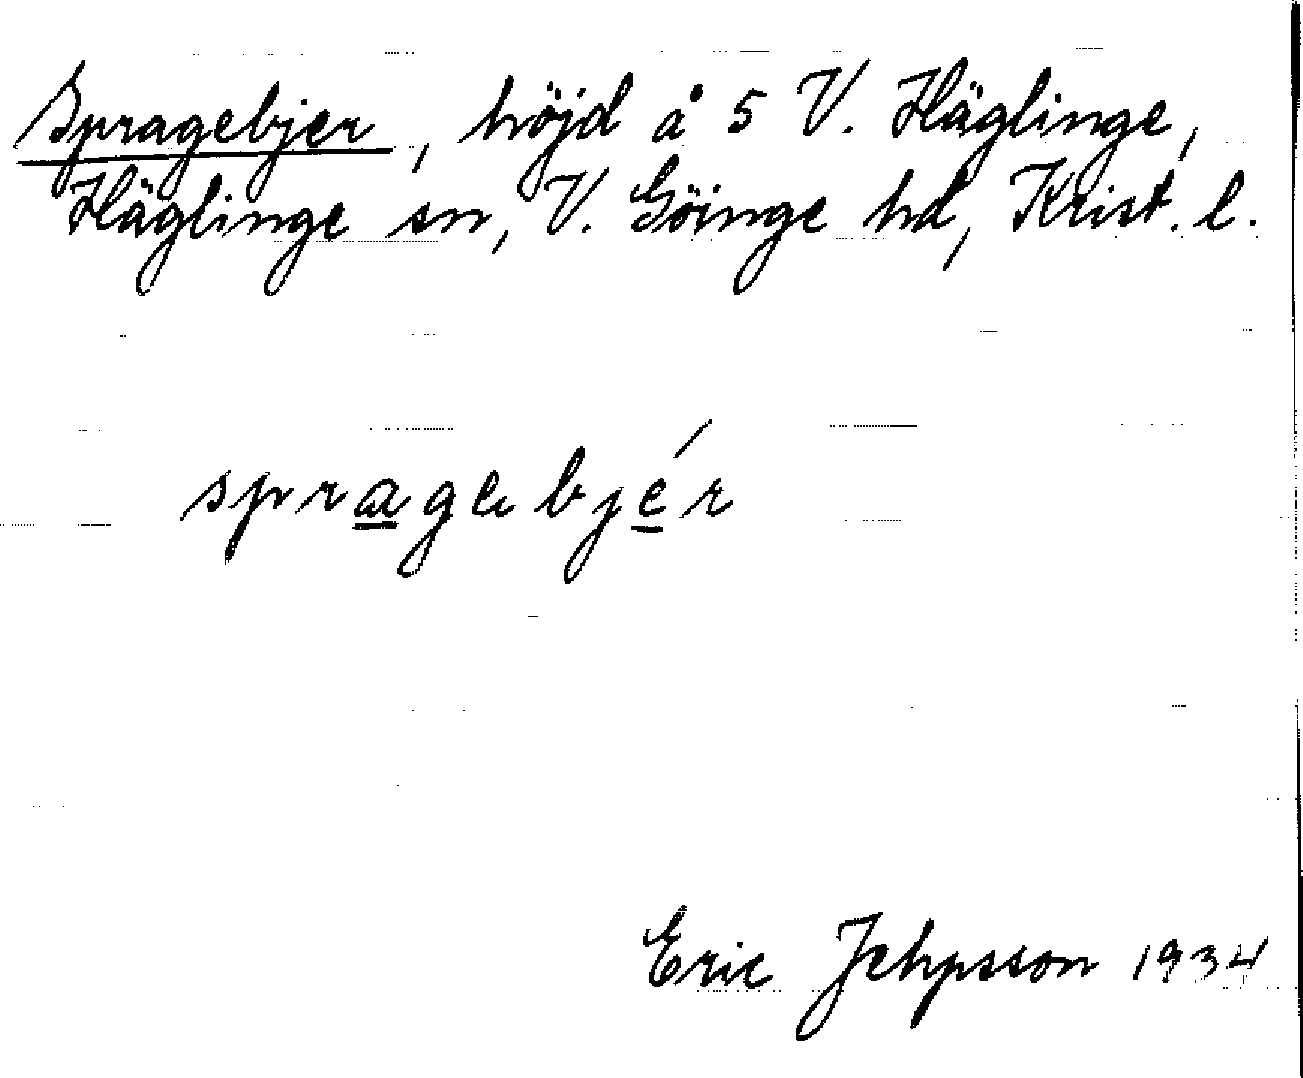 Spragebjer, höjd å 5 V. Häglinge,
Häglinge sn, V. Göinge hd, Krist. l.
spragebjér
Eric Jehpsson 1934